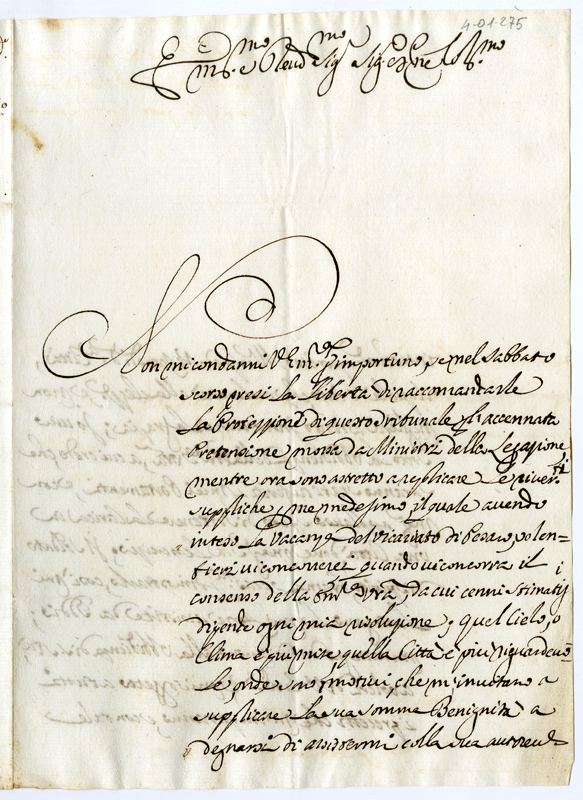 4-01-275
Em.mo e Rend.mo Sig.re Sig.re e Pne Col.mo
Non mi condanni V Em.za p importuno, se nel Sabbato
scorso presi la Libertà di raccomandarle
la Protezzione di questo Tribunale p l'accennata
Pretensione mossa da Ministri della Legazione,
mentre ora sono astretto a replicare le river.ti
suppliche p me medesimo, il quale avendo
inteso la Vacanza del Vicariato di Pesaro, volen=
tieri vi concorrerei, quando vi concorra il
consenso della Em.za Vra, da cui cenni stimatis.
dipende ogni mia risoluzione, quel Cielo, o
Clima è più mite quella Città è più riguardevo=
le, onde sono motivi, che m'invitano a
supplicare la sua somma Benignità a
degnarsi di assistermi colla sua autorevole